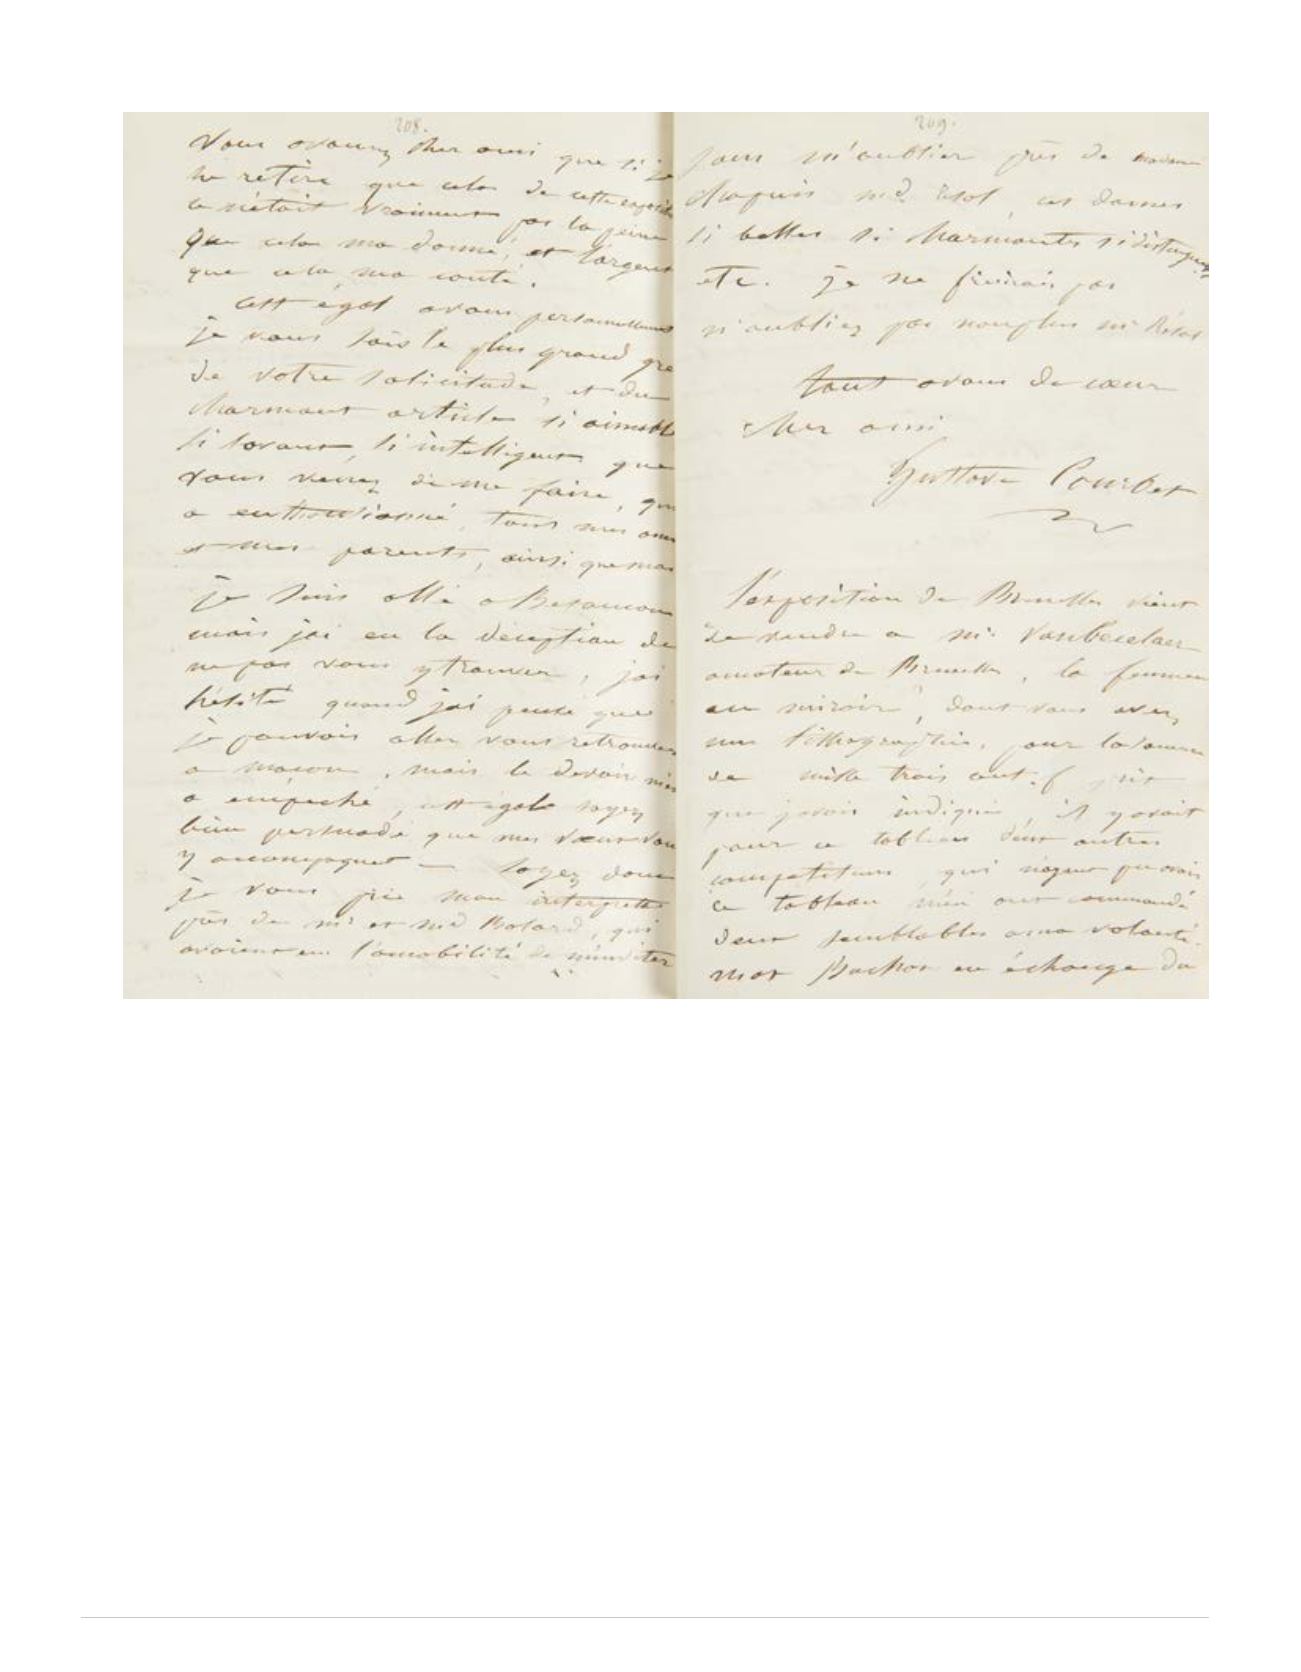 208.
Vous avouerez cher ami que si je
ne retire que cela de cette
ce n'était vraiment pas la peine
que cela ma donné, et l'argent
que cela ma couté.
cest égal avous personnellement
je vous sais le plus grand gré
de votre solicitude, et du
charmant article si aimable
si savant, si intelligent que
vous venez de me faire, qui
a enthousiasmé, tous mes amis
et mes parents, ainsi que moi
je suis allé a Besancon
mais jai eu la déception de
ne pas vous y trouver, jai
hésité quand jai pensé que
je pouvais aller vous retrouver
a macon, mais le devoir m'en
a empeché, cest égale soyez
bien persuadé que mes vœux vous
y accompagnet — soyez donc
je vous prie mon interprette
près de mr et md Bolard, qui
avaient eu l'amabilité de m'inviter
209.
sans m'oublier près de madame
Chapuis md , ces dames
si belles si charmantes si distinguées
etc. je ne finirais pas
n'oubliez pas non plus mr
tout avous de cœur
cher ami
Gustave Courbet
l'exposition de Bruxelles vient
de vendre a mr. Vanbecelaer
amateur de Bruxelles, la femme
au miroir, dont vous avez
une lithographie, pour la somme
de mille trois cent. f prix
que javais indiqué, il y avait
pour ce tableau deux autres
competiteurs qui
ce tableau m'en ont commandé
deux semblables ama volonté.
mor en échange du